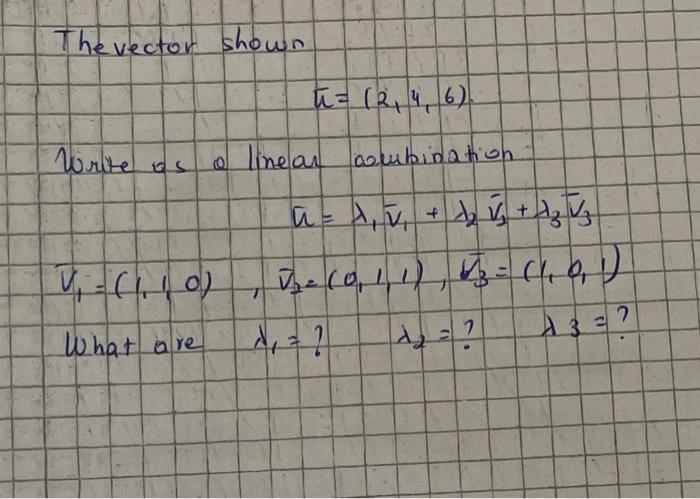 The vector shown
ū = (2, 4, 6)
Write as a linear
ū = λ₁v̄₁ + λ₂v̄₂ + λ₃v̄₃
v̄₁ = (1, 1, 0) , v̄₂ = (0, 1, 1) , v̄₃ = (1, 0, 1)
What are λ₁ = ? λ₂ = ? λ3 = ?